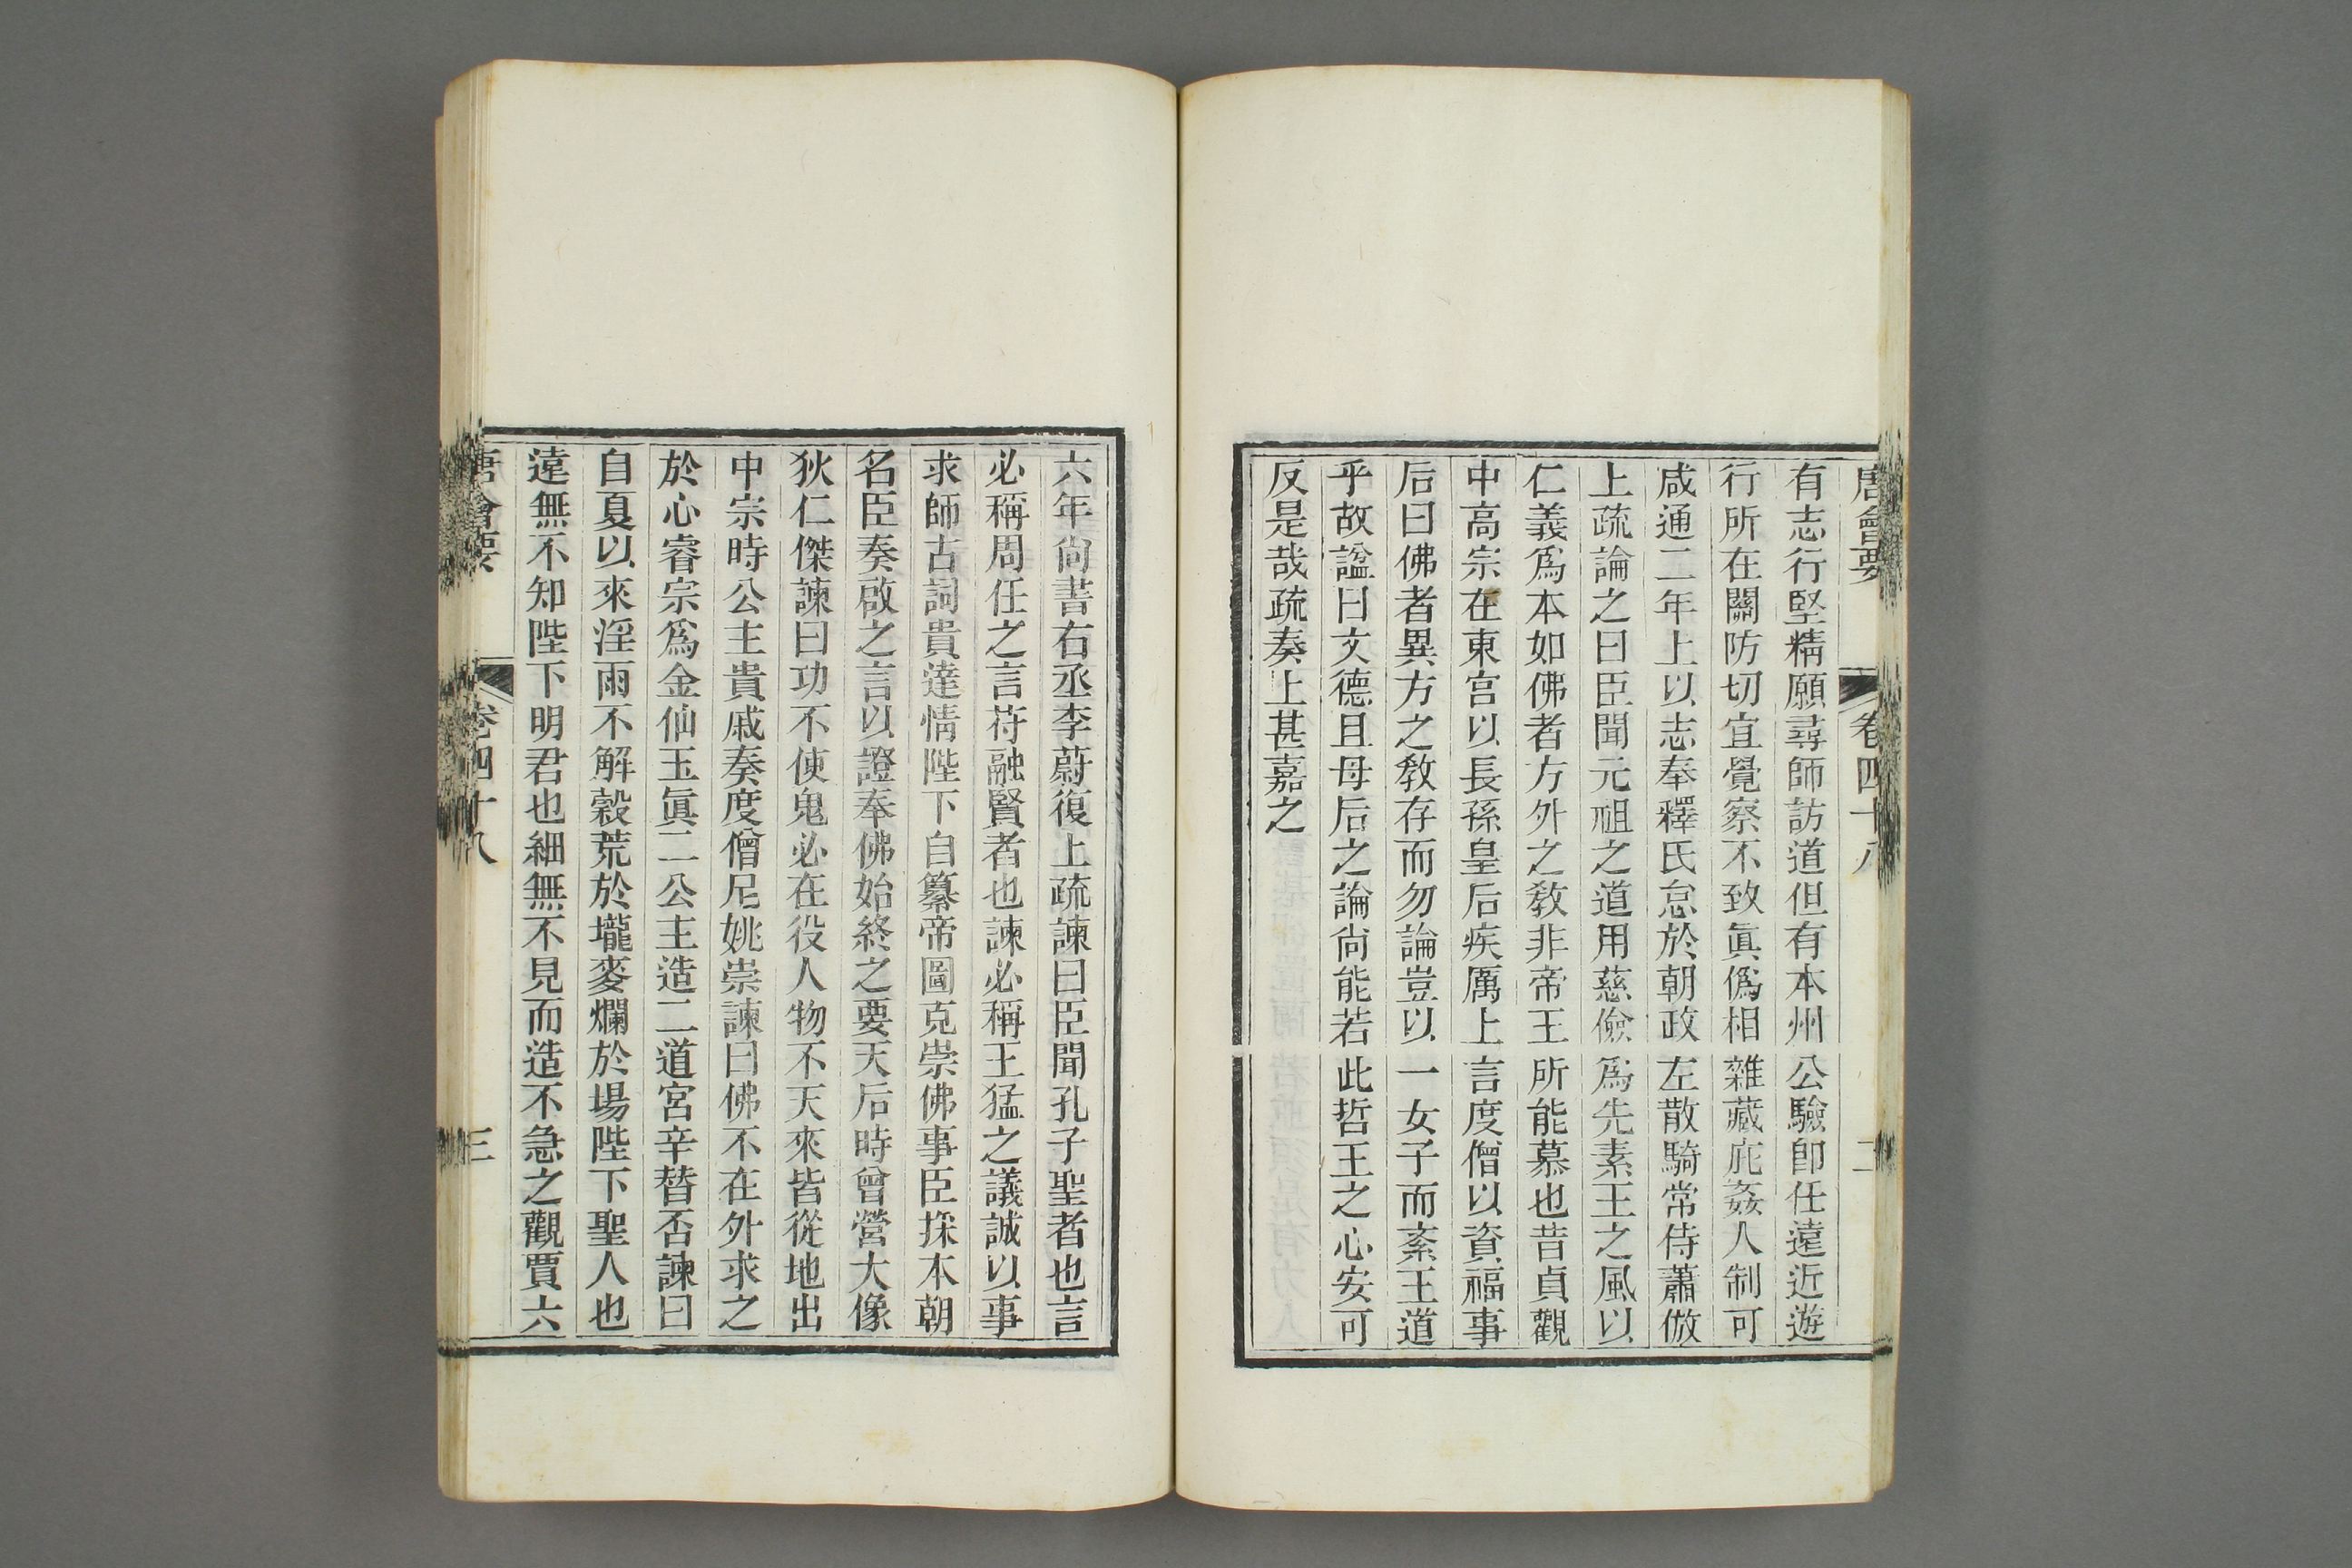 唐會要 卷四十八 二
有志行堅精願尋師訪道但有本州公驗卽任遠近遊
行所在關防切宜覺察不致眞僞相雜藏庇姦人制可
咸通二年上以志奉釋氏怠於朝政左散騎常侍蕭倣
上疏論之曰臣聞元祖之道用慈儉爲先素王之風以
仁義爲本如佛者方外之敎非帝王所能慕也昔貞觀
中高宗在東宮以長孫皇后疾厲上言度僧以資福事
后曰佛者異方之敎存而勿論豈以一女子而紊王道
乎故諡曰文德且母后之論尙能若此哲王之心安可
反是哉疏奏上甚嘉之
六年尙書右丞李蔚復上疏諫曰臣聞孔子聖者也言
必稱周任之言苻融賢者也諫必稱王猛之議誠以事
求師古詞貴達情陛下自纂帝圖克崇佛事臣採本朝
名臣奏啟之言以證奉佛始終之要天后時曾營大像
狄仁傑諫曰功不使鬼必在役人物不天來皆從地出
中宗時公主貴戚奏度僧尼姚崇諫曰佛不在外求之
於心睿宗爲金仙玉眞二公主造二道宮辛替否諫曰
自夏以來淫雨不解穀荒於壠麥爛於場陛下聖人也
遠無不知陛下明君也細無不見而造不急之觀賈六
唐會要 卷四十八 三